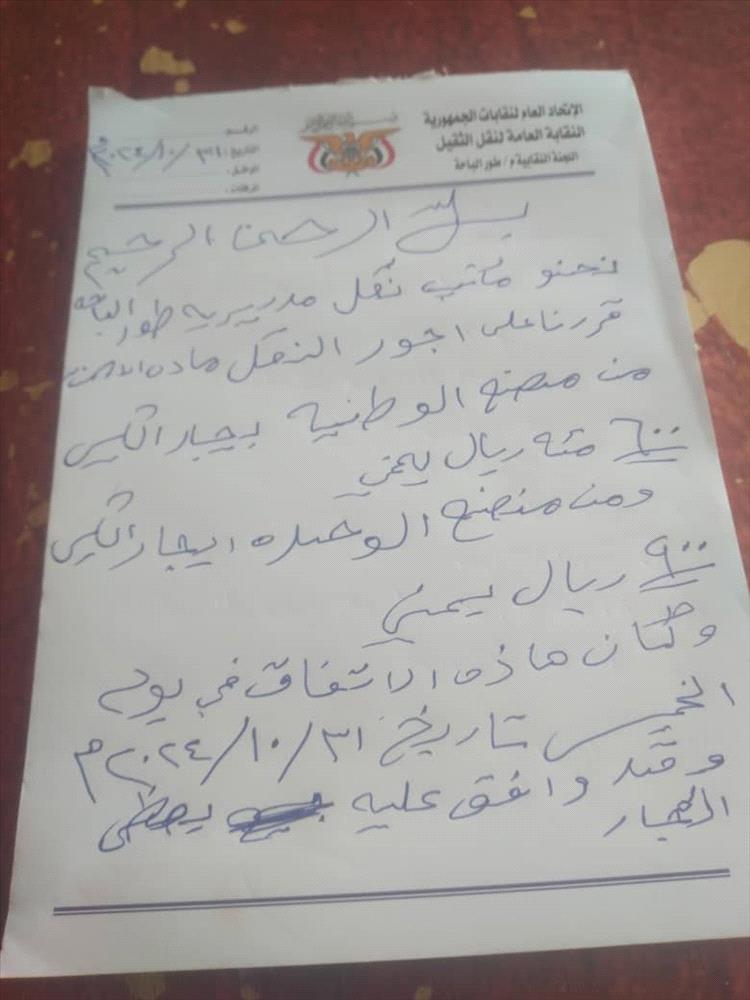 الإتحاد العام لنقابات الجمهورية
النقابة العامة لنقل الثقيل
اللجنة النقابية م/ طور الباحة
الرقم:
التاريخ: ٣١/ ١٠/ ٢٠٢٤م
المرفقات:
بسم الله الرحمن الرحيم
نحنو مكتب نقل مديريه طور الباحه
قررنا على اجور النقل ماده الاسمنت
من مصنع الوطنيه بيجار الكيس
٦٠٠ مئه ريال يمني
ومن منصنع الوحده ايجار الكيس
٩٠٠ ريال يمني
وكان هاذه الاتفاق في يوم
الخميس تاريخ ٣١/ ١٠/ ٢٠٢٤م
وقد وافق عليه
التجار